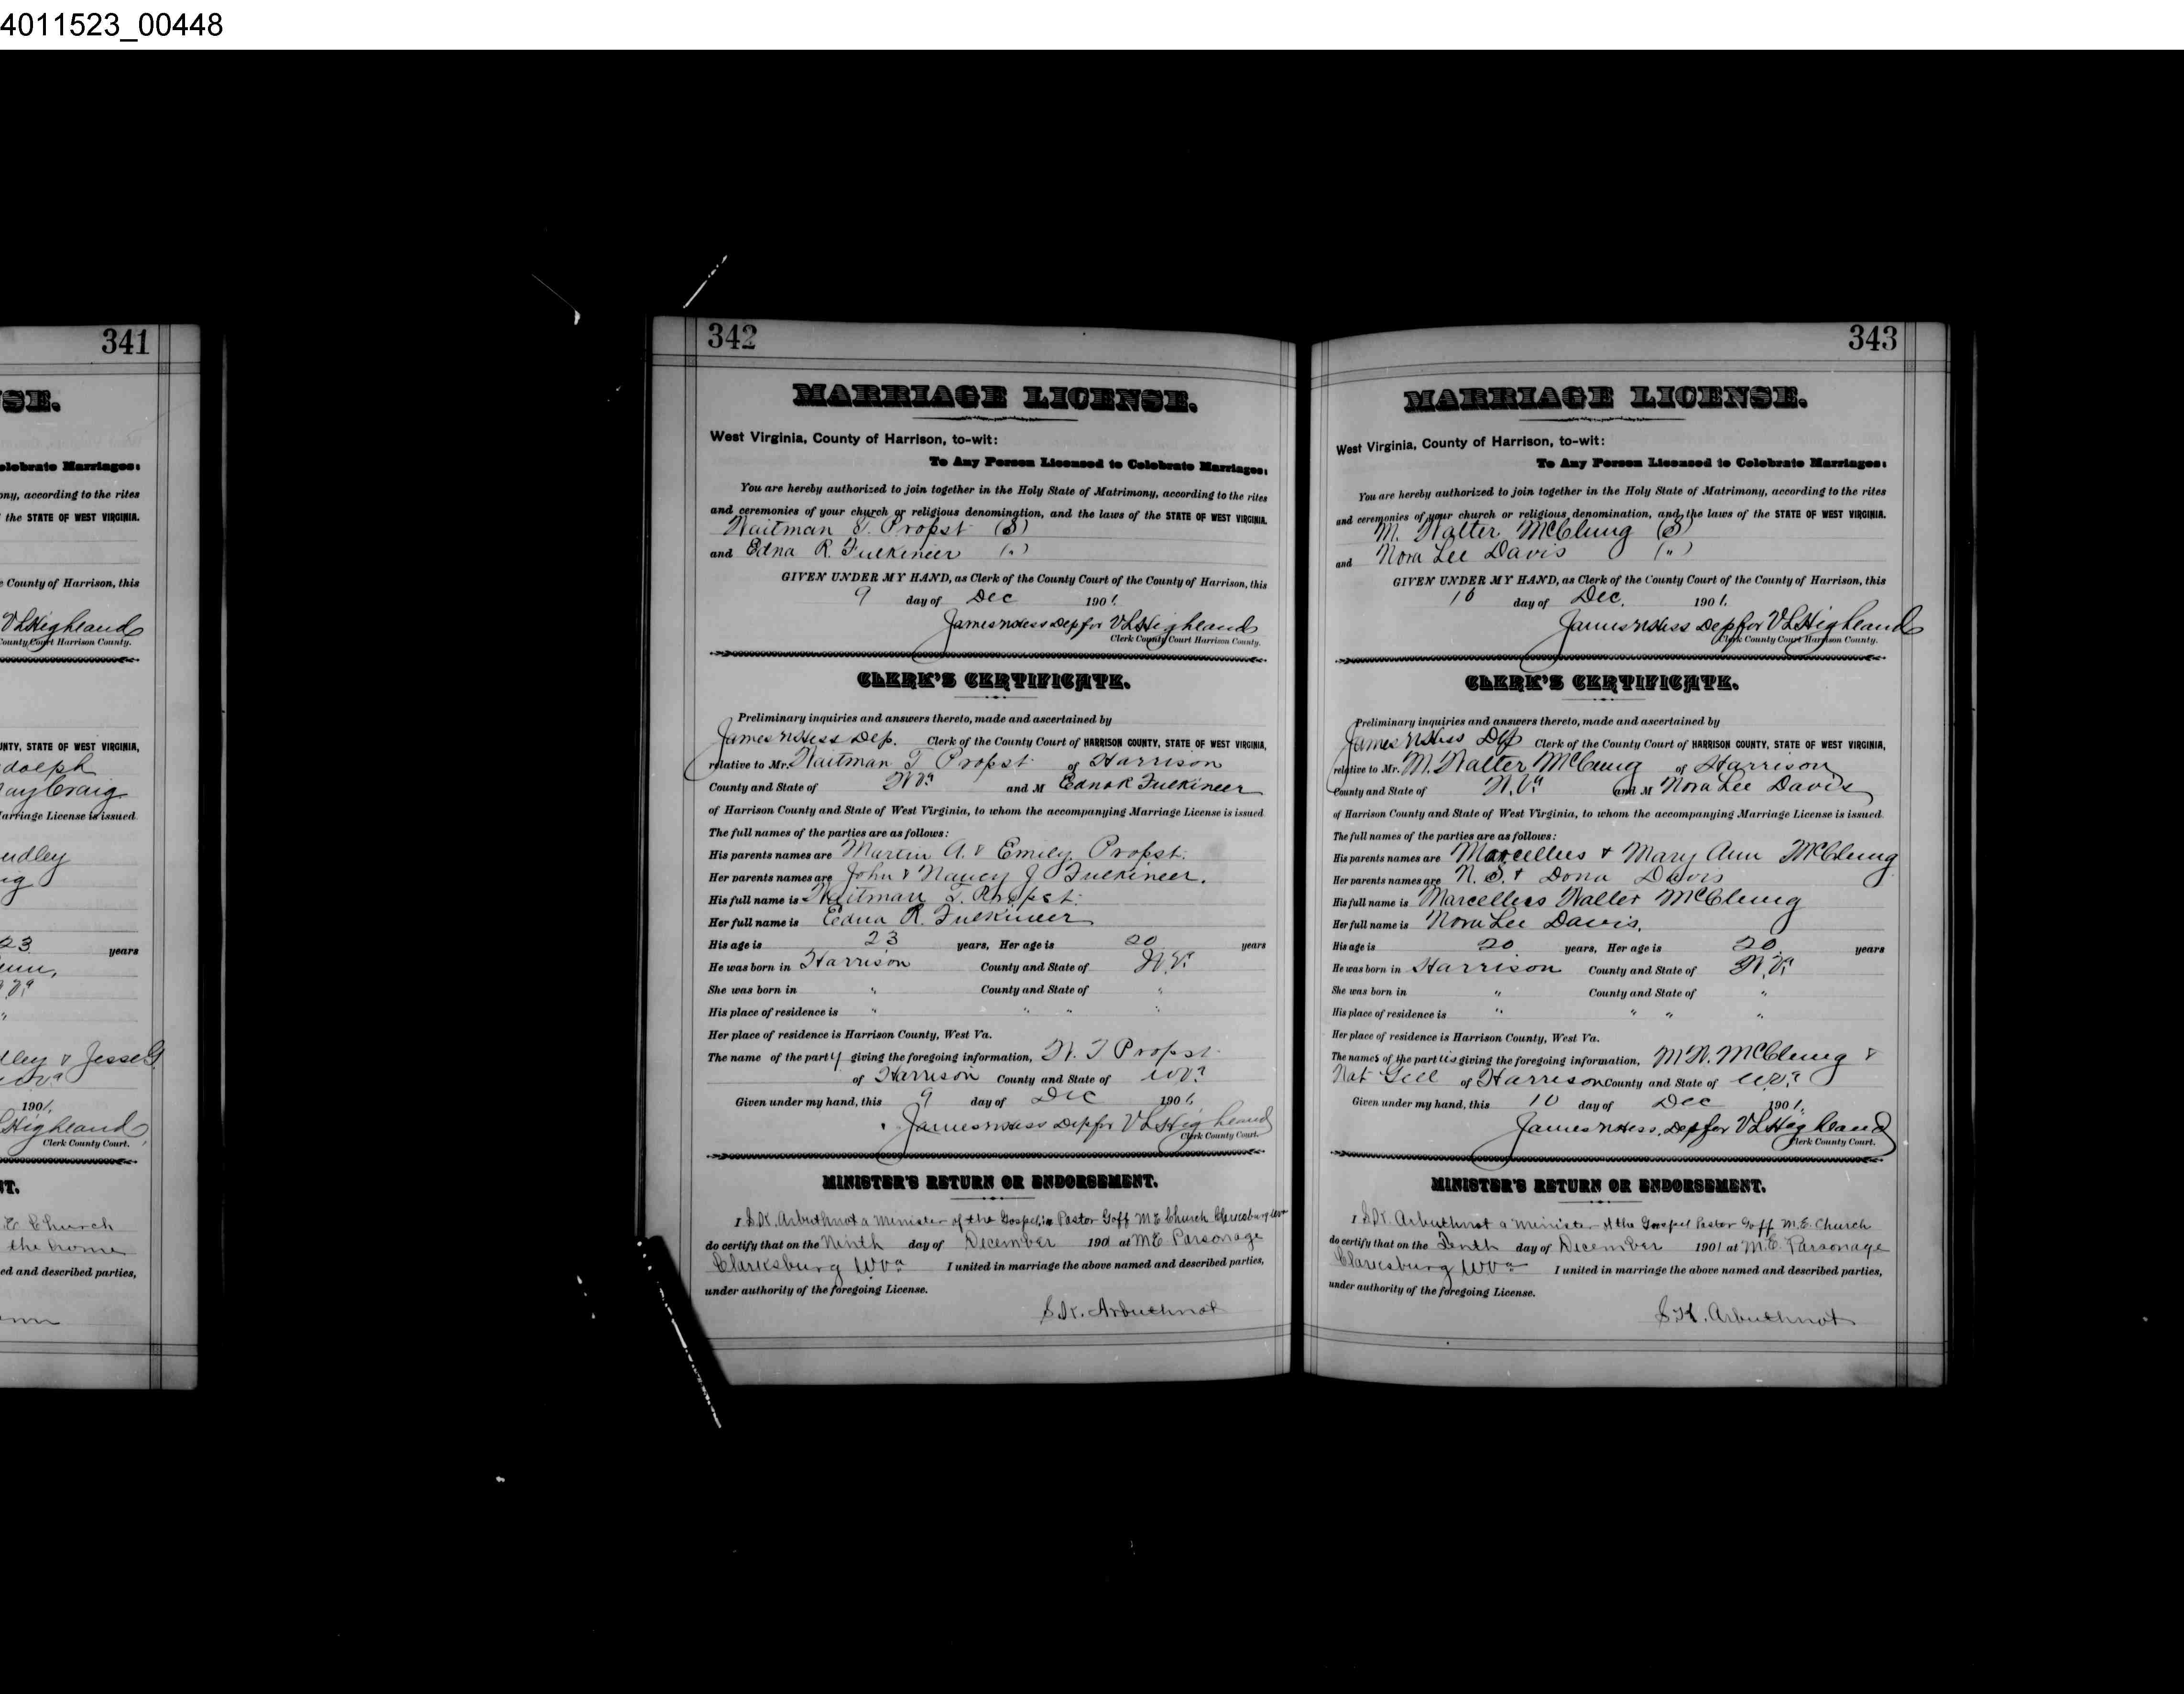 4011523_00448
341
SE.
elebrate Marriages:
ony, according to the rites
the STATE OF WEST VIRGINIA.
e County of Harrison, this
V L Highland
County Court Harrison County.
UNTY, STATE OF WEST VIRGINIA,
dolph
ay Craig
Marriage License is issued.
udley
ig
23 years
"
dley & Jesse G.
W Va
190 1.
Highland
Clerk County Court.
NT.
E Church
the home
ed and described parties,
342
MARRIAGE LICENSE.
West Virginia, County of Harrison, to-wit:
To Any Person Licensed to Celebrate Marriages:
You are hereby authorized to join together in the Holy State of Matrimony, according to the rites
and ceremonies of your church or religious denomination, and the laws of the STATE OF WEST VIRGINIA.
Waitman T. Propst (S)
and Edna R. Fulkineer (")
GIVEN UNDER MY HAND, as Clerk of the County Court of the County of Harrison, this
9 day of Dec 190 1.
James N Hess Dep for V L Highland
Clerk County Court Harrison County.
CLERK'S CERTIFICATE.
Preliminary inquiries and answers thereto, made and ascertained by
James N Hess Dep. Clerk of the County Court of HARRISON COUNTY, STATE OF WEST VIRGINIA,
relative to Mr. Waitman T Propst of Harrison
County and State of W Va and M Edna R Fulkineer
of Harrison County and State of West Virginia, to whom the accompanying Marriage License is issued
The full names of the parties are as follows:
His parents names are Martin A. & Emily Propst.
Her parents names are John & Nancy J Fulkineer.
His full name is Waitman T. Propst.
Her full name is Edna R. Fulkineer
His age is 23 years, Her age is 20 years
He was born in Harrison County and State of W. Va
She was born in " County and State of "
His place of residence is " " " "
Her place of residence is Harrison County, West Va.
The name of the party giving the foregoing information, W. T Propst
of Harrison County and State of W Va
Given under my hand, this 9 day of Dec 190 1.
James N Hess Dep for V L Highland
Clerk County Court.
MINISTER'S RETURN OR ENDORSEMENT.
I S.K. Arbuthnot a Minister of the Gospel, Pastor Goff M E Church Clarksburg W Va
do certify that on the Ninth day of December 1901 at M E Parsonage
Clarksburg W Va I united in marriage the above named and described parties,
under authority of the foregoing License.
S.K. Arbuthnot
343
MARRIAGE LICENSE.
West Virginia, County of Harrison, to-wit:
To Any Person Licensed to Celebrate Marriages:
You are hereby authorized to join together in the Holy State of Matrimony, according to the rites
and ceremonies of your church or religious denomination, and the laws of the STATE OF WEST VIRGINIA.
M. Walter McClung (S)
and Nora Lee Davis (")
GIVEN UNDER MY HAND, as Clerk of the County Court of the County of Harrison, this
10 day of Dec. 190 1.
James N Hess Dep for V L Highland
Clerk County Court Harrison County.
CLERK'S CERTIFICATE.
Preliminary inquiries and answers thereto, made and ascertained by
James N Hess Dep Clerk of the County Court of HARRISON COUNTY, STATE OF WEST VIRGINIA,
relative to Mr. M. Walter McClung of Harrison
County and State of W. Va and M Nora Lee Davis
of Harrison County and State of West Virginia, to whom the accompanying Marriage License is issued.
The full names of the parties are as follows:
His parents names are Marcellus & Mary Ann McClung
Her parents names are N. S. & Dona Davis
His full name is Marcellus Walter McClung
Her full name is Nora Lee Davis.
His age is 20 years, Her age is 20 years
He was born in Harrison County and State of W. Va
She was born in " County and State of "
His place of residence is " " " "
Her place of residence is Harrison County, West Va.
The names of the parties giving the foregoing information, M W. McClung &
Nat Gill of Harrison County and State of W Va
Given under my hand, this 10 day of Dec 190 1.
James N Hess. Dep for V L Highland
Clerk County Court.
MINISTER'S RETURN OR ENDORSEMENT.
I S.K. Arbuthnot a Minister of the Gospel Pastor Goff M.E. Church
do certify that on the Tenth day of December 1901 at M.E. Parsonage
Clarksburg W Va I united in marriage the above named and described parties,
under authority of the foregoing License.
S K. Arbuthnot